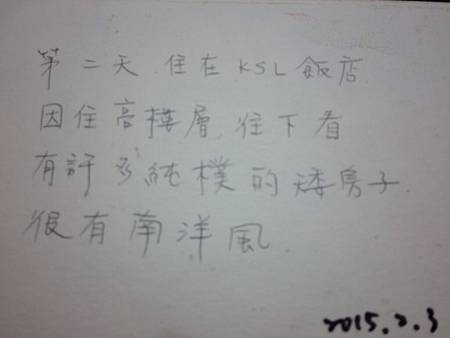 第二天 住在 KSL 飯店
因住高樓層 往下看
有許多純樸的矮房子
很有南洋風
2015.2.3